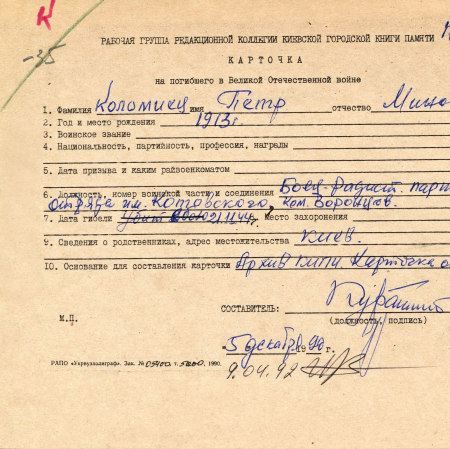 К
-35
РАБОЧАЯ ГРУППА РЕДАКЦИОННОЙ КОЛЛЕГИИ КИЕВСКОЙ ГОРОДСКОЙ КНИГИ ПАМЯТИ
КАРТОЧКА
на погибшего в Великой Отечественной войне
1. Фамилия Коломиец имя Петр отчество
2. Год и место рождения 1913г.
3. Воинское звание
4. Национальность, партийность, профессия, награды
5. Дата призыва и каким райвоенкоматом
6. Должность, номер воинской части и соединения Боец-радист. парт
отряда им. Котовского, ком. Воронцов.
7. Дата гибели 21.11.44г. Место захоронения
9. Сведения о родственниках, адрес местожительства Киев.
10. Основание для составления карточки Архив Карточка
СОСТАВИТЕЛЬ:
(должность, подпись)
М.П.
"5" декабря 1990 г.
РАПО «Укрвузполиграф». Зак. № 05400 т. 5000, 1990.
9.04.92